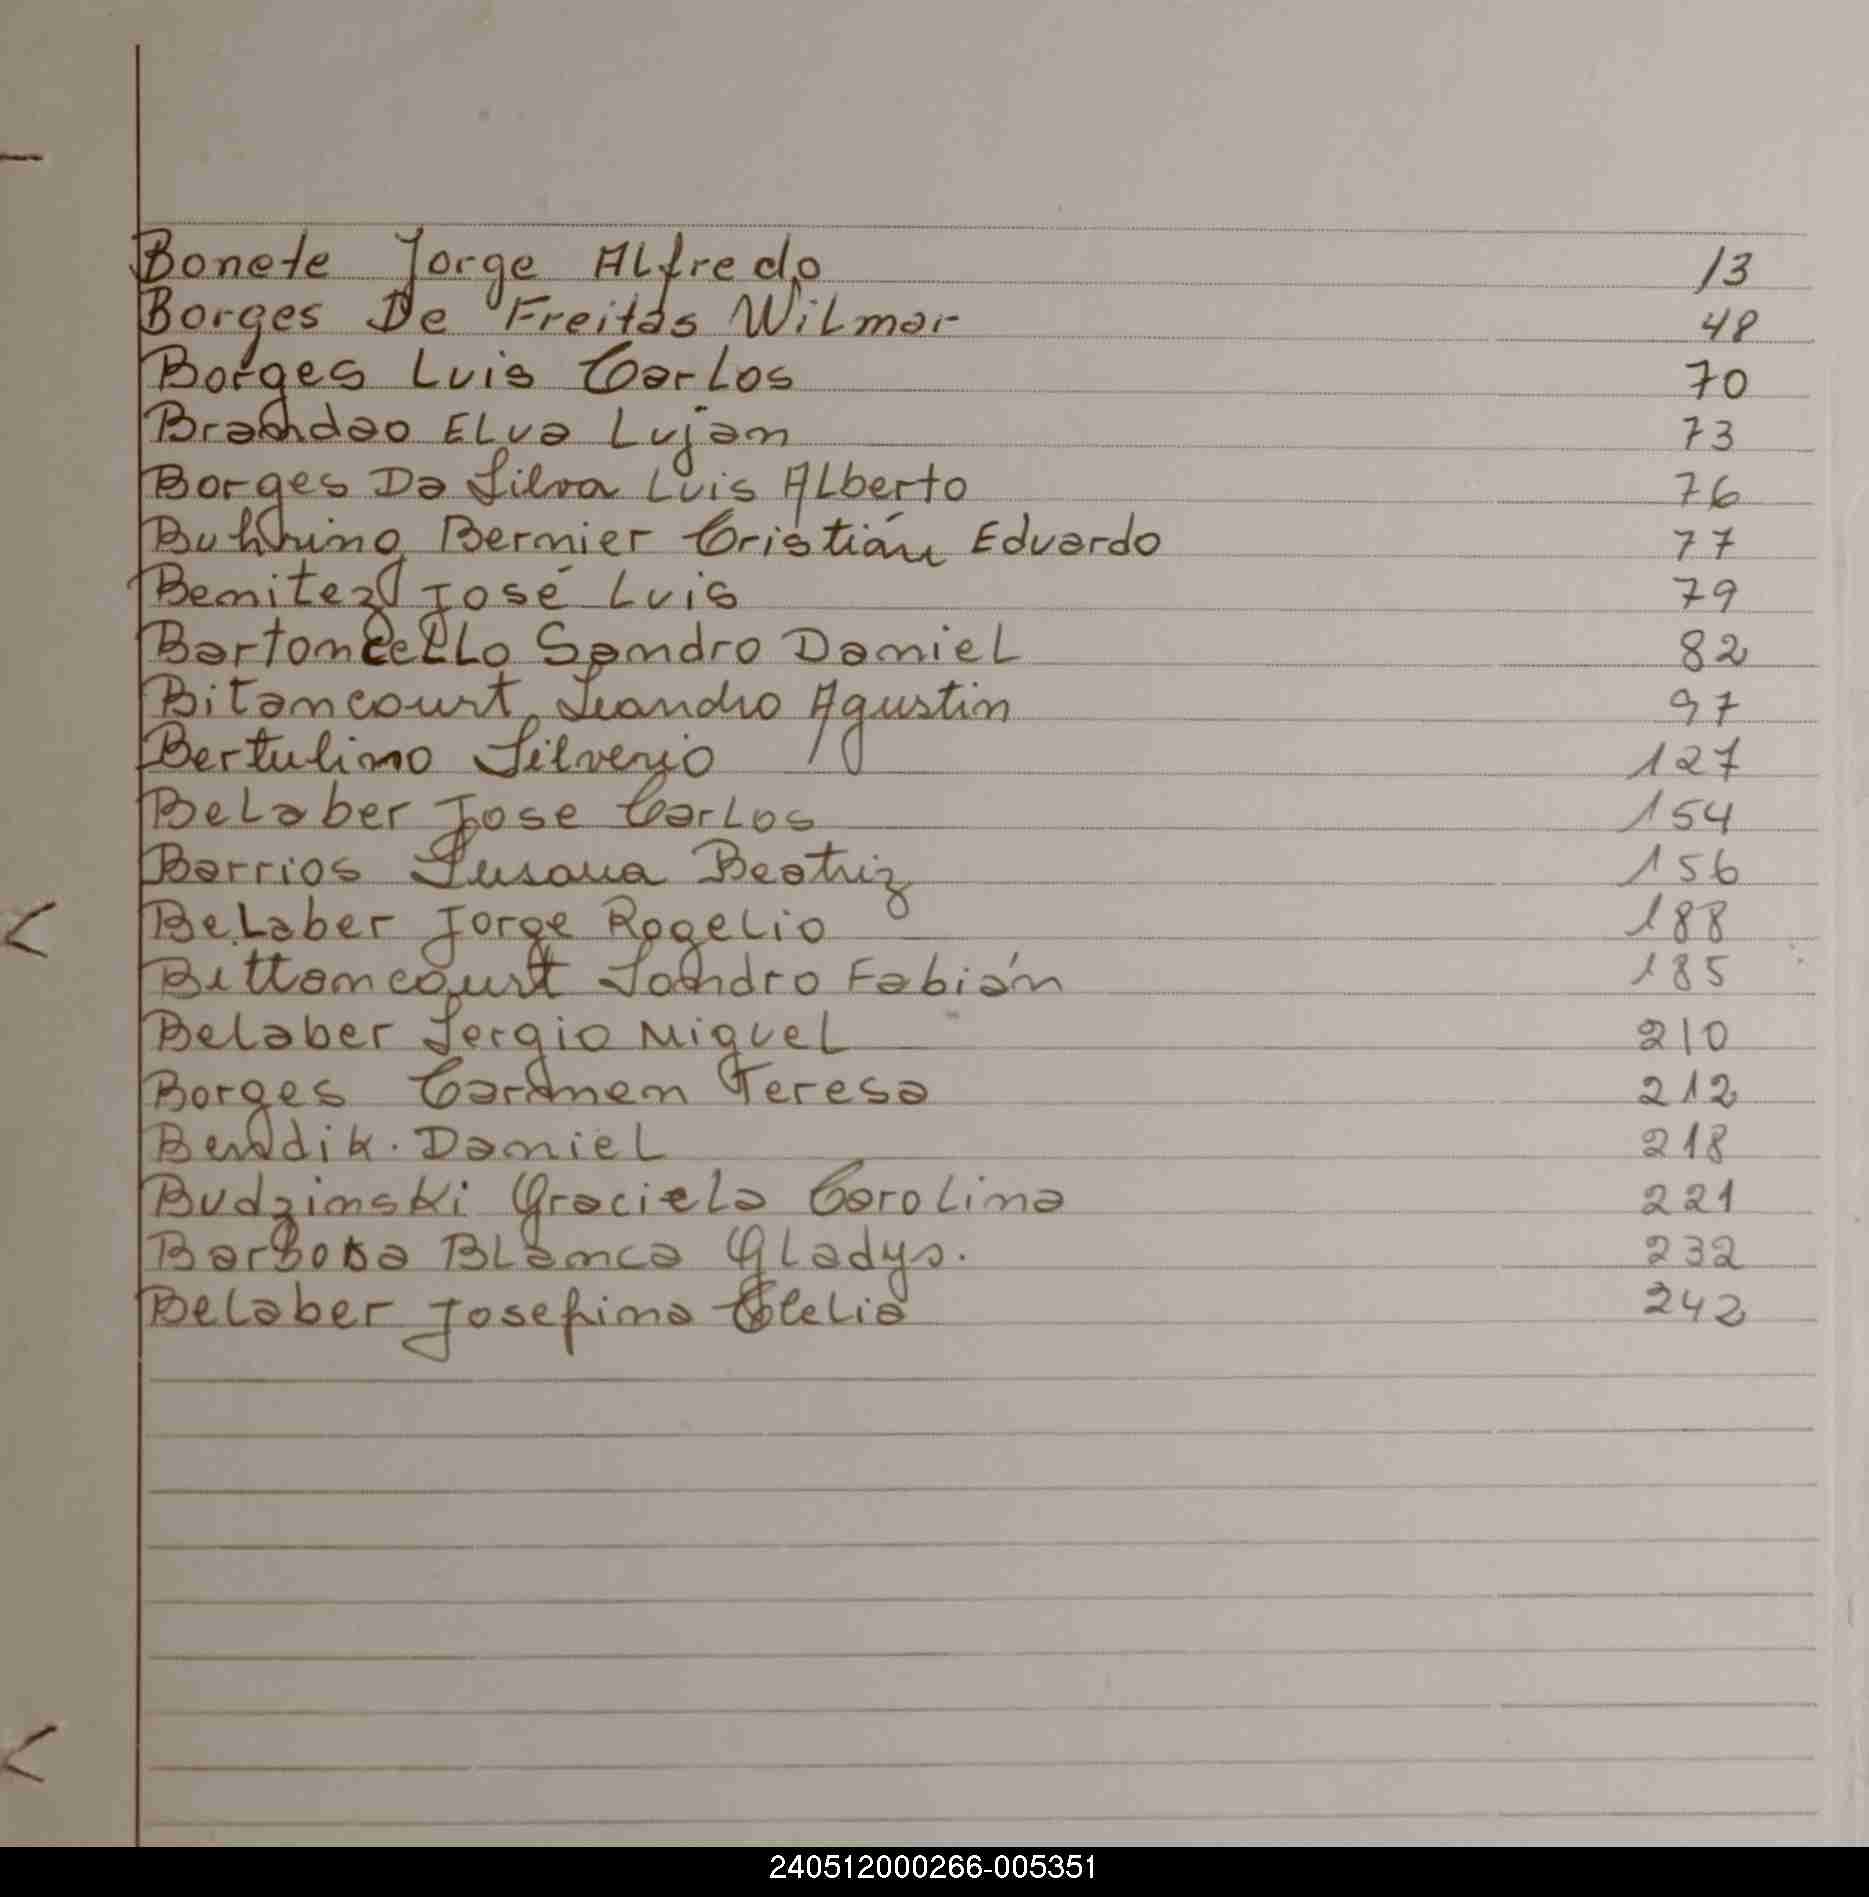 Bonete Jorge Alfredo 13
Borges De Freitas Wilmar 48
Borges Luis Carlos 70
Brandao Elva Lujan 73
Borges Da Silva Luis Alberto 76
Buhring Bernier Cristián Eduardo 77
Benitez José Luis 79
Bartoncello Sandro Daniel 82
Bitancourt Leandro Agustin 97
Bertulino Silverio 127
Belaber Jose Carlos 154
Barrios Susana Beatriz 156
Belaber Jorge Rogelio 188
Bittancourt Sandro Fabián 185
Belaber Sergio Miguel 210
Borges Carmen Teresa 212
Bendik. Daniel 218
Budzinski Graciela Carolina 221
Barbosa Blanca Gladys. 232
Belaber Josefina Clelia 242
240512000266-005351